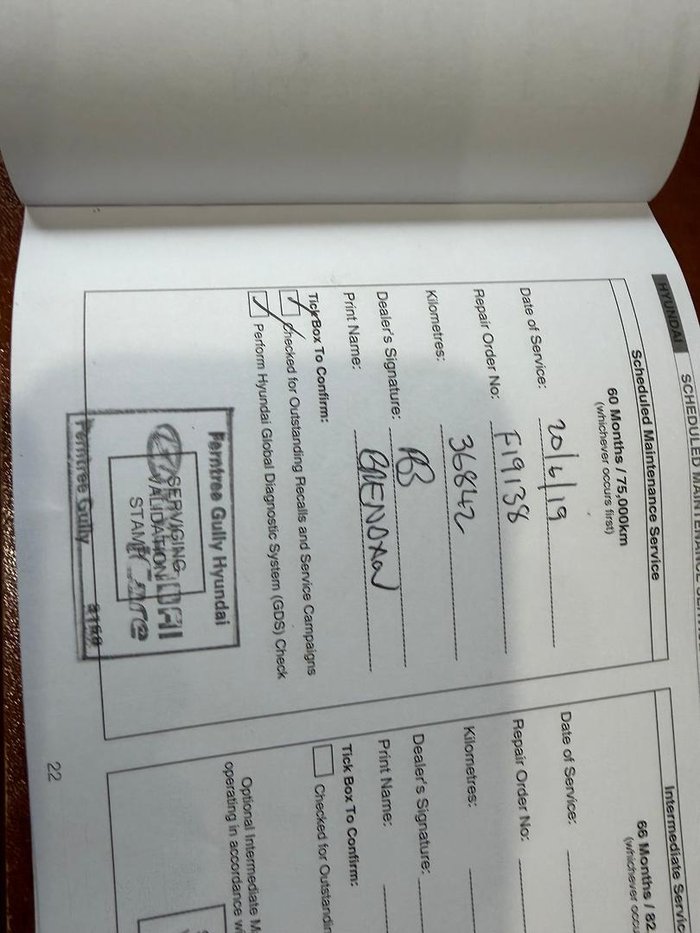 HYUNDAI
Scheduled Maintenance Service
60 Months / 75,000km
(whichever occurs first)
Date of Service: 20/6/19
Repair Order No: F19138
Kilometres: 36842
Dealer's Signature:
Print Name: BRENDAN
Tick Box To Confirm:
Checked for Outstanding Recalls and Service Campaigns
Perform Hyundai Global Diagnostic System (GDS) Check
Ferntree Gully Hyundai
SERVICING
VALIDATION
STAMP
Ferntree Gully
Intermediate
66 Months / 82
(whichever
Date of Service:
Repair Order No:
Kilometres:
Dealer's Signature:
Print Name:
Tick Box To Confirm:
Checked for
Optional Intermediate
operating in accordance
22